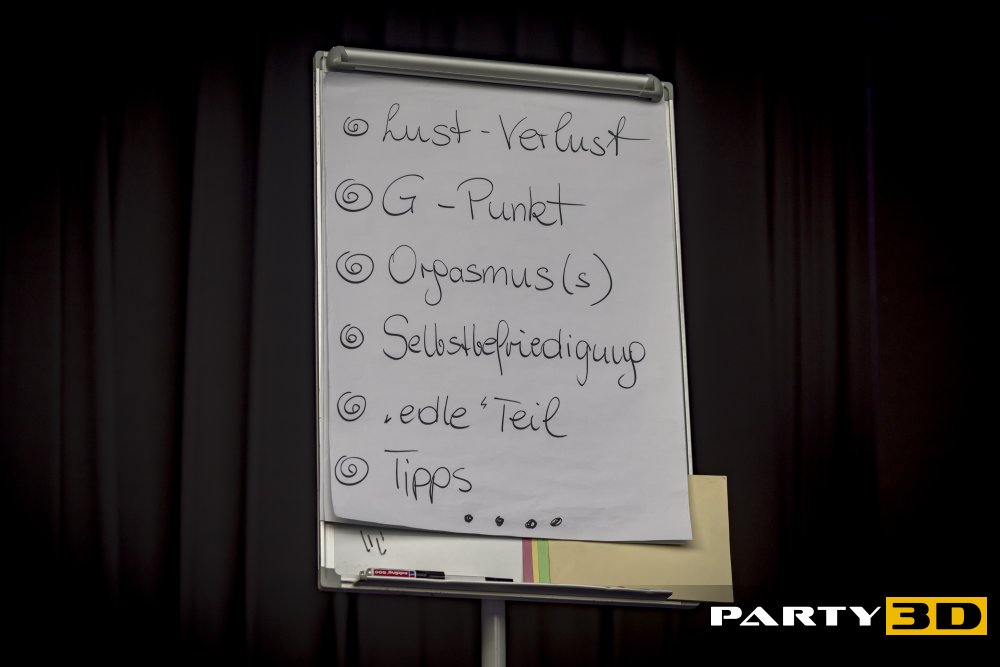 Lust-Verlust
G-Punkt
Orgasmus(s)
Selbstbefriedigung
„edle“ Teil
Tipps
....
PARTY3D